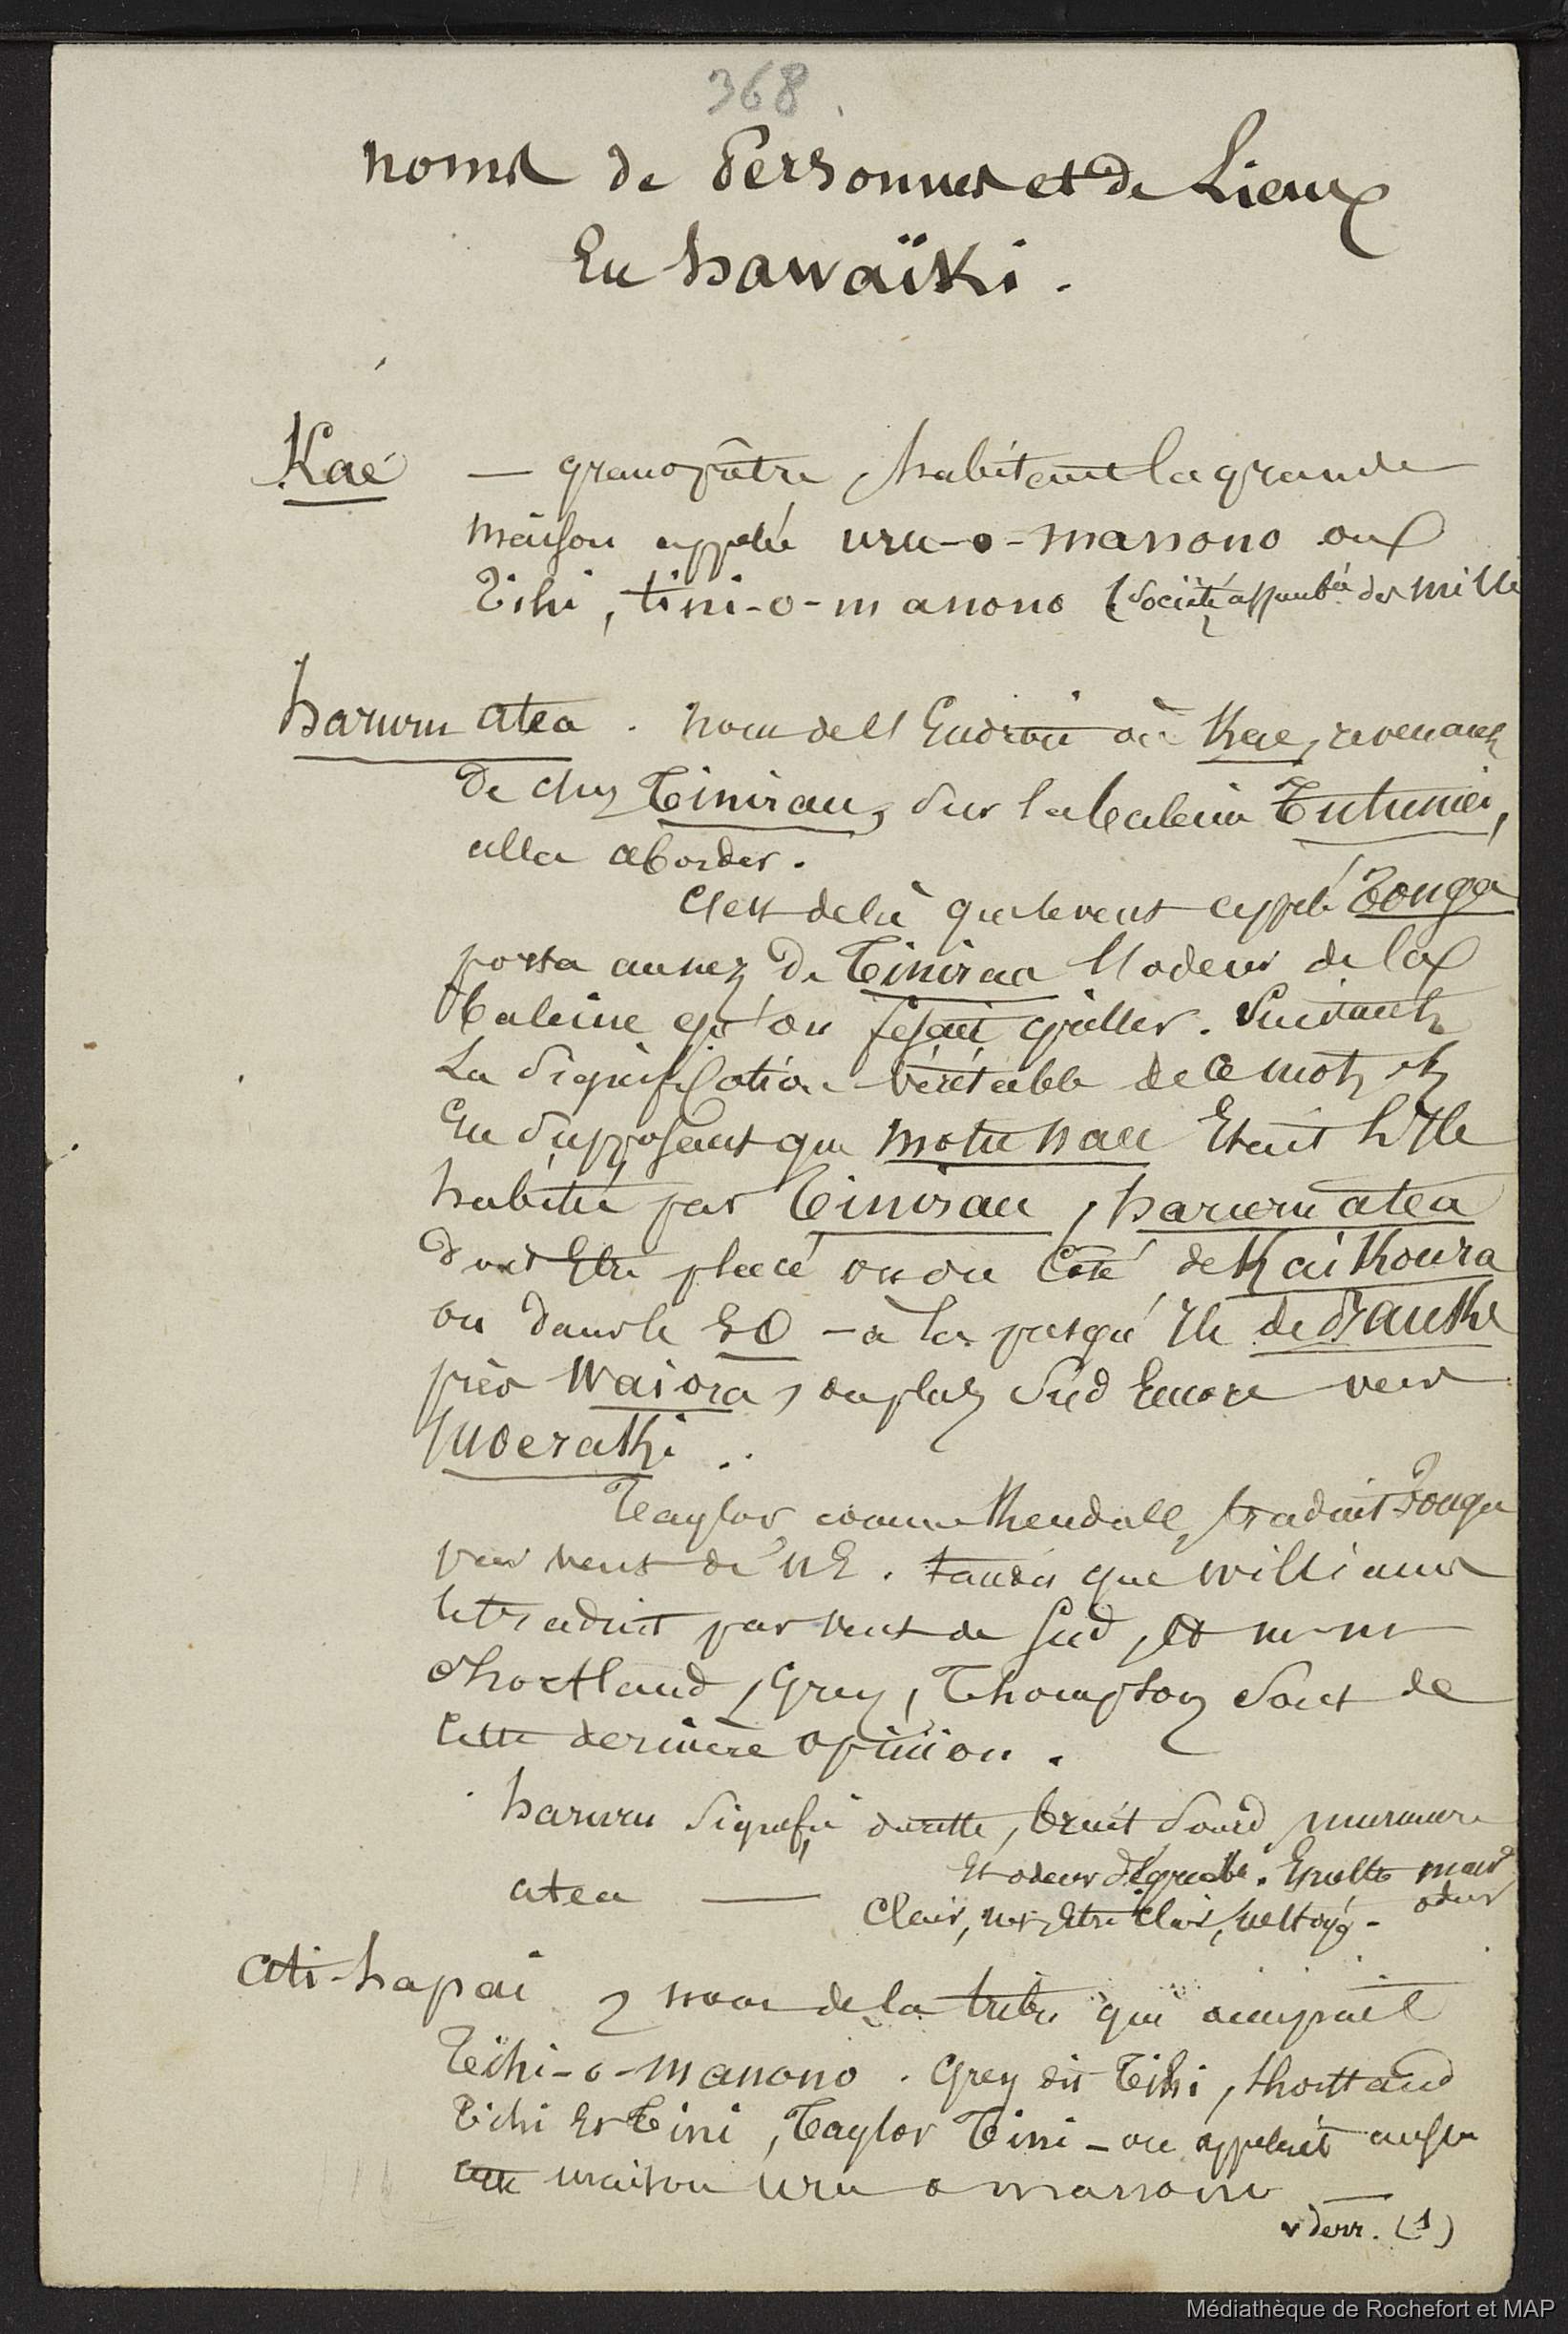 368
noms de Personnes et de Lieux
En hawaïki.
Kae — grand prêtre, habitant la grande
maison appelée uru-o-manono ou
Tihi, tini-o-manono (société assemblée des mille
haruru atea. nom de l'Endroit où Kae, revenant
de chez Tinirau, sur la baleine Tutunui,
alla aborder.
C'est de là que le vent appelé Tonga
porta au nez de Tinirau l'odeur de la
baleine qu'on fesait griller. Suivant
La signification véritable de ce mot, et
En supposant que motu nau Etait l'Ile
habitée par Tinirau, haruru atea
doit Etre placé ou du Côté de Kai Koura
ou dans le SO - à la presqu'Ile de Banks
près Waiora, ou plus Sud Encore vers
Moeraki.
Taylor, comme Kendall, traduit Tonga
par vent de NE. tandis que Williams
le traduit par vent de Sud, et
Shortland, Grey, Thompson sont de
cette dernière opinion.
haruru signifie bruit sourd, murmure
Et odeur désagréable.
atea — Clair, Etre clair, nettoyé - odeur
Ati-hapai, nom de la tribu qui occupait
Tihi-o-manono. Grey dit Tihi, Shortland
Tihi et Tini, Taylor Tini - on appelait aussi
cette maison uru o manono —
v derr. (1)
Médiathèque de Rochefort et MAP